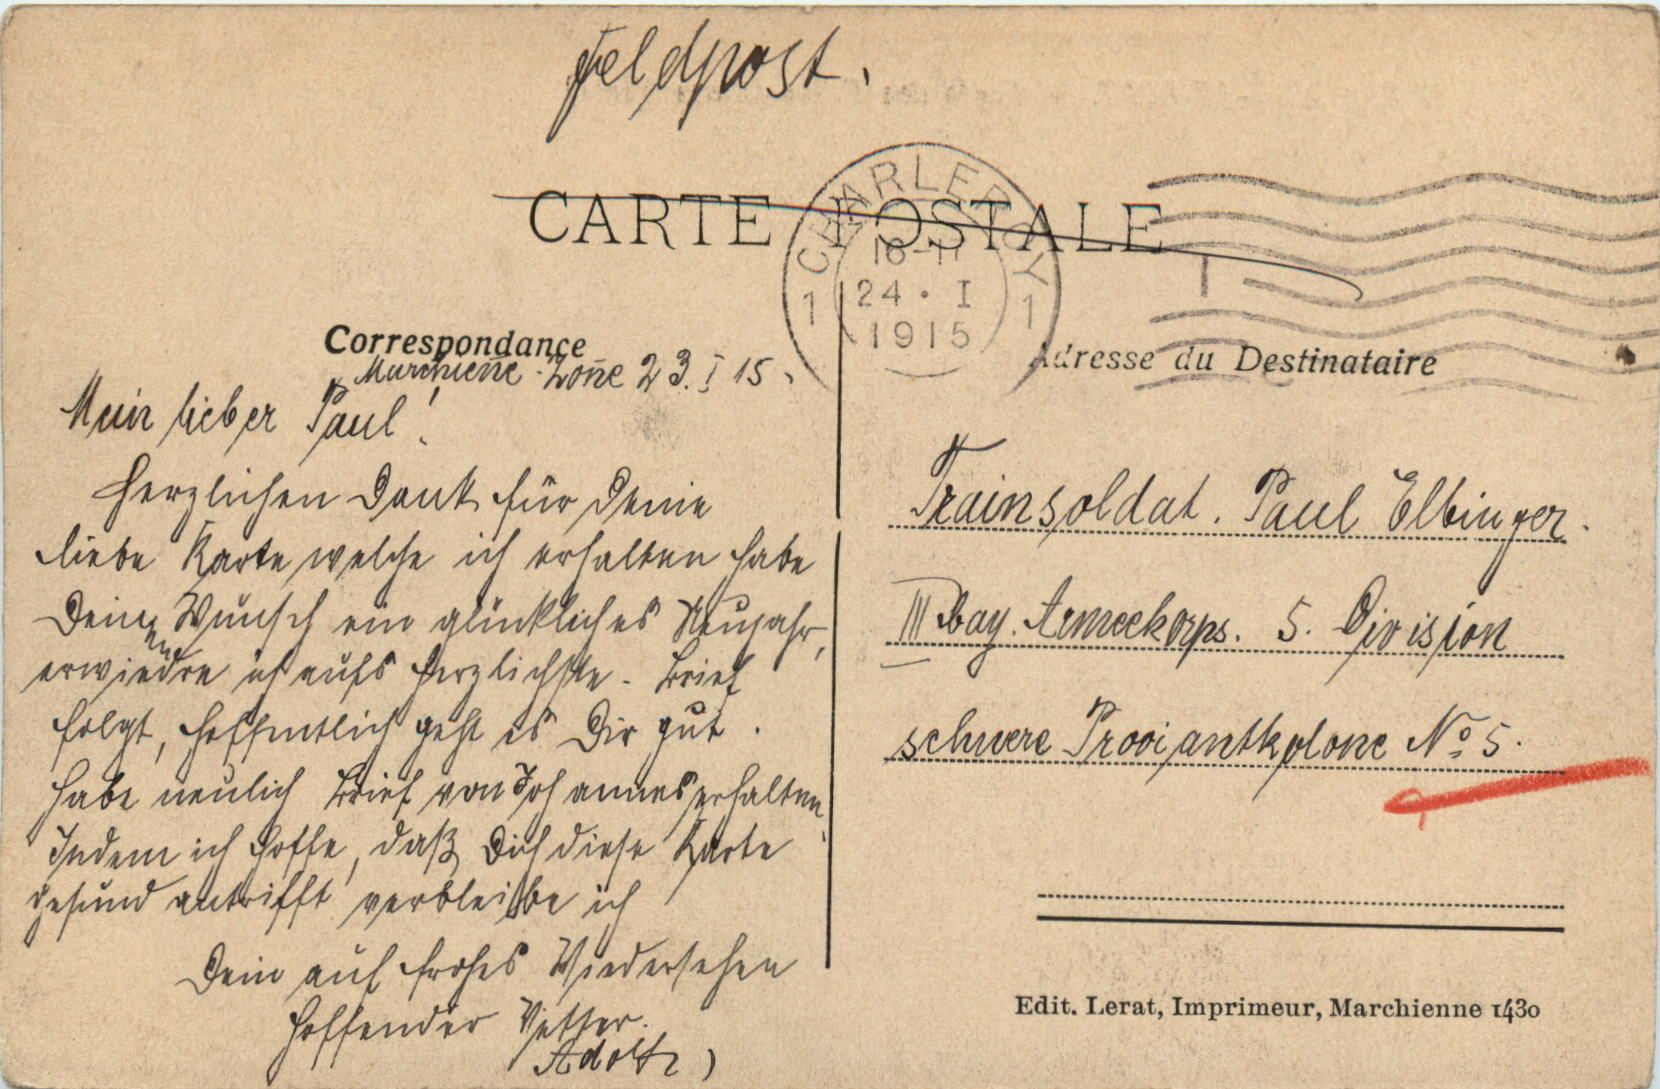 Feldpost.
CARTE POSTALE
CHARLEROY
1 1
24 · I
1915
Correspondance
Marchienne-Zone 23. I 15.
Mein lieber Paul!
Herzlichen Dank für Deine
liebe Karte welche ich erhalten habe
Deinen Wunsch ein glückliches Neujahr,
erwiedre ich aufs herzlichste. Brief
folgt, hoffentlich geht es Dir gut.
Habe neulich Brief von Johannes erhalten.
Indem ich hoffe, daß Dich diese Karte
gesund antrifft verbleibe ich
Dein auf frohes Wiedersehen
hoffender Vetter.
Adolf
Adresse du Destinataire
Trainsoldat. Paul Elbinger.
III bay. Armeekorps. 5. Division
schwere Proviantkolone No 5.
Edit. Lerat, Imprimeur, Marchienne 1430